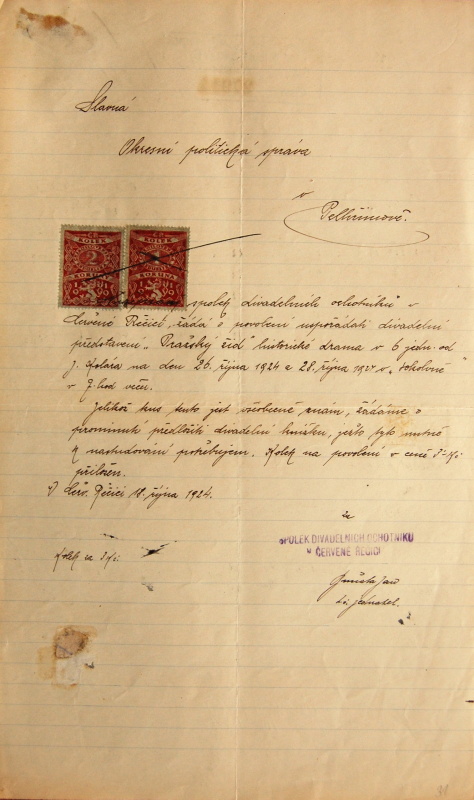 Slavná
Okresní politická správa
v
Pelhřimově.
ČR ČR
KOLEK KOLEK
2
KORUNA KORUNA
spolek divadelních ochotníků v
Červené Řečici, žádá o povolení uspořádati divadelní
představení „Pražský žid" historické drama v 6 jedn. od
J. Kolára na den 26. října 1924 a 28. října 1924 v „Sokolovně
v 7. hod več.
Jelikož kus tento jest všeobecně znám, žádáme o
prominutí předložiti divadelní knížku, ježto tyto nutně
k nastudování potřebujem. Kolek na povolení v ceně Kč
přiložen.
V Červ. Řečici 18. října 1924.
za
SPOLEK DIVADELNÍCH OCHOTNÍKŮ
v ČERVENÉ ŘEČICI
Kolek za Kč.
Jan
t. č. jednatel.
31